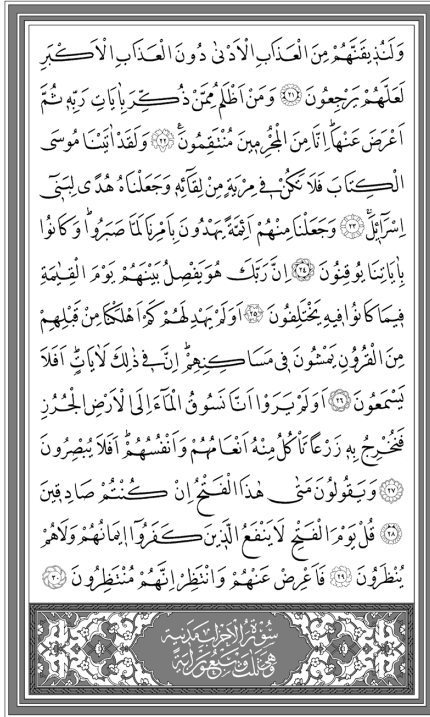 وَلَنُذِيقَنَّهُمْ مِنَ الْعَذَابِ الْاَدْنٰى دُونَ الْعَذَابِ الْاَكْبَرِ
لَعَلَّهُمْ يَرْجِعُونَ ﴿٢١﴾ وَمَنْ اَظْلَمُ مِمَّنْ ذُكِّرَ بِاٰيَاتِ رَبِّه۪ ثُمَّ
اَعْرَضَ عَنْهَاۜ اِنَّا مِنَ الْمُجْرِم۪ينَ مُنْتَقِمُونَ۟ ﴿٢٢﴾ وَلَقَدْ اٰتَيْنَا مُوسَى
الْكِتَابَ فَلَا تَكُنْ ف۪ي مِرْيَةٍ مِنْ لِقَٓائِه۪ وَجَعَلْنَاهُ هُدًى لِبَن۪ٓي
اِسْرَٓائ۪لَۚ ﴿٢٣﴾ وَجَعَلْنَا مِنْهُمْ اَئِمَّةً يَهْدُونَ بِاَمْرِنَا لَمَّا صَبَرُواۜ وَكَانُوا
بِاٰيَاتِنَا يُوقِنُونَ ﴿٢٤﴾ اِنَّ رَبَّكَ هُوَ يَفْصِلُ بَيْنَهُمْ يَوْمَ الْقِيٰمَةِ
ف۪يمَا كَانُوا ف۪يهِ يَخْتَلِفُونَ ﴿٢٥﴾ اَوَلَمْ يَهْدِ لَهُمْ كَمْ اَهْلَكْنَا مِنْ قَبْلِهِمْ
مِنَ الْقُرُونِ يَمْشُونَ ف۪ي مَسَاكِنِهِمْۜ اِنَّ ف۪ي ذٰلِكَ لَاٰيَاتٍۜ اَفَلَا
يَسْمَعُونَ ﴿٢٦﴾ اَوَلَمْ يَرَوْا اَنَّا نَسُوقُ الْمَٓاءَ اِلَى الْاَرْضِ الْجُرُزِ
فَنُخْرِجُ بِه۪ زَرْعًا تَأْكُلُ مِنْهُ اَنْعَامُهُمْ وَاَنْفُسُهُمْۜ اَفَلَا يُبْصِرُونَ
﴿٢٧﴾ وَيَقُولُونَ مَتٰى هٰذَا الْفَتْحُ اِنْ كُنْتُمْ صَادِق۪ينَ
﴿٢٨﴾ قُلْ يَوْمَ الْفَتْحِ لَا يَنْفَعُ الَّذ۪ينَ كَفَرُٓوا ا۪يمَانُهُمْ وَلَا هُمْ
يُنْظَرُونَ ﴿٢٩﴾ فَاَعْرِضْ عَنْهُمْ وَانْتَظِرْ اِنَّهُمْ مُنْتَظِرُونَ ﴿٣٠﴾
سُورَةُ الْاَحْزَابِ مَدَنِيَّةٌ
وَهِيَ ثَلَاثٌ وَسَبْعُونَ اٰيَةً